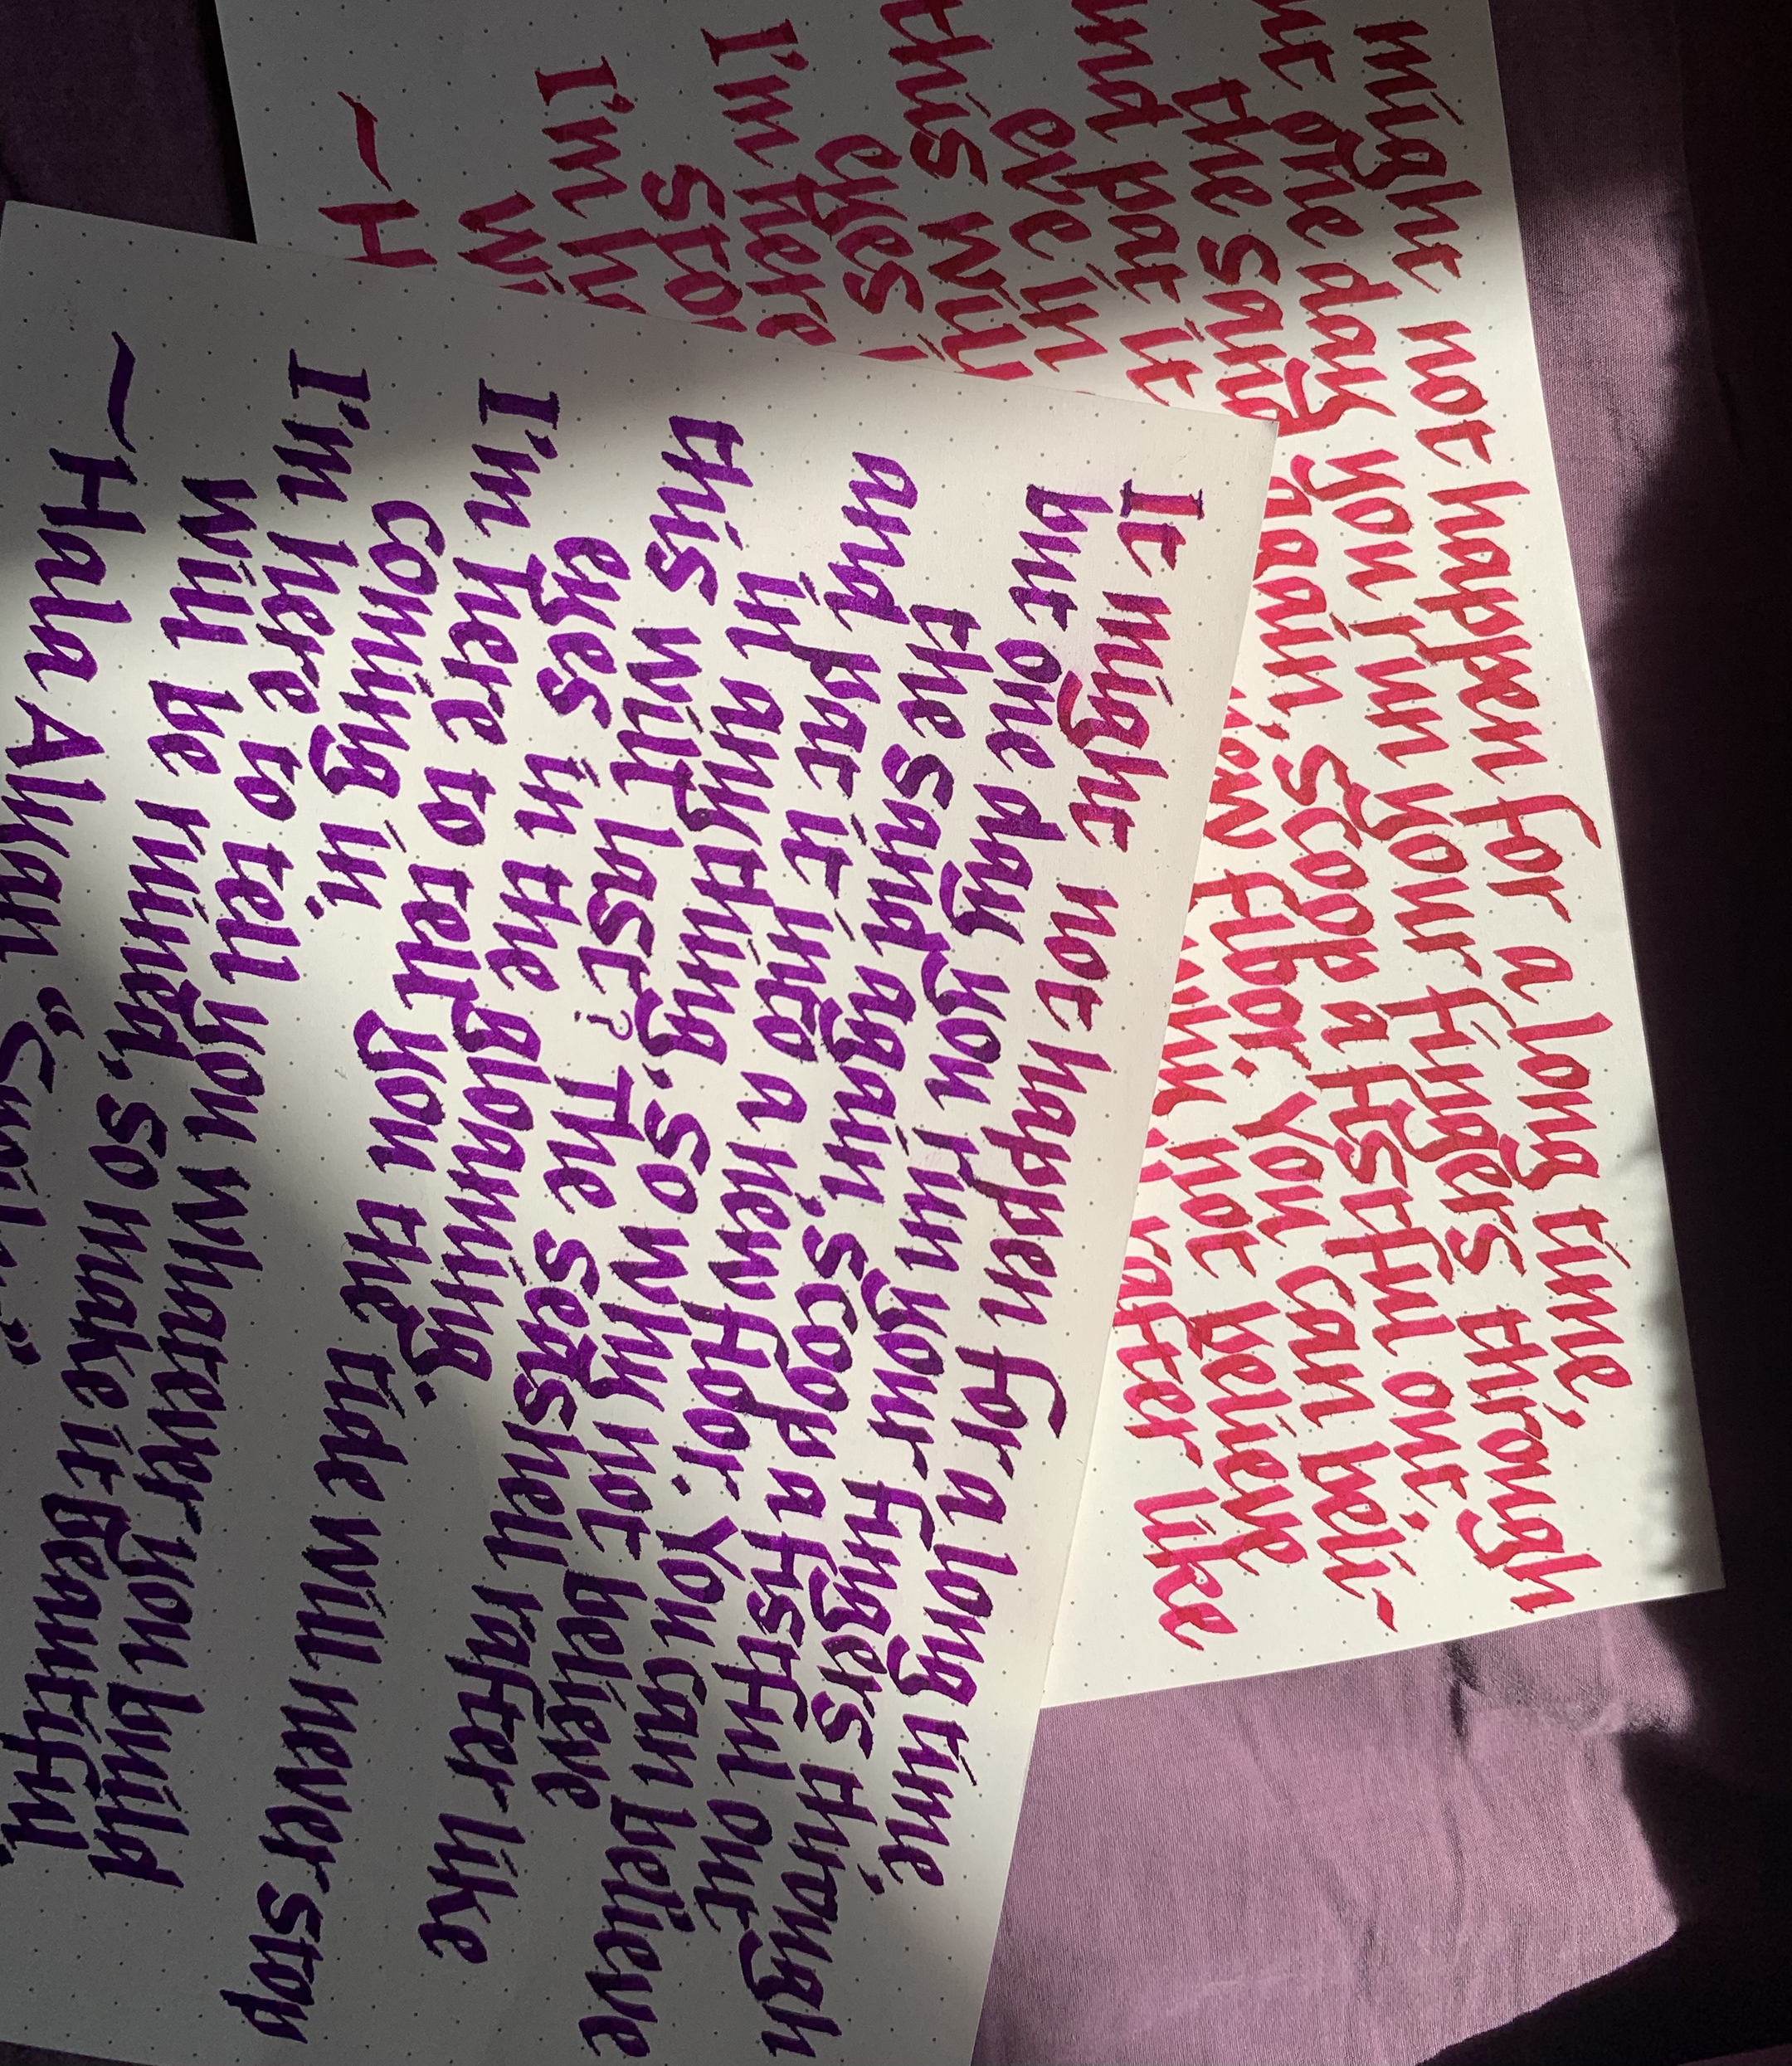 It might not happen for a long time,
but one day you run your fingers through
the sand again, scoop a fistful out,
and pat it into a new floor. You can believe
in anything, so why not believe
this will last? The seashell rafter like
eyes in the gloaming.
I'm here to tell you the tide will never stop
coming in.
I'm here to tell you whatever you build
will be ruined, so make it beautiful.
— Hala Alyan
might not happen for a long time,
one day you run your fingers through
the sand again, scoop a fistful out,
and pat it new floor. You can beli-
eve in why not believe
this will rafter like
eyes
I'm here
I'm